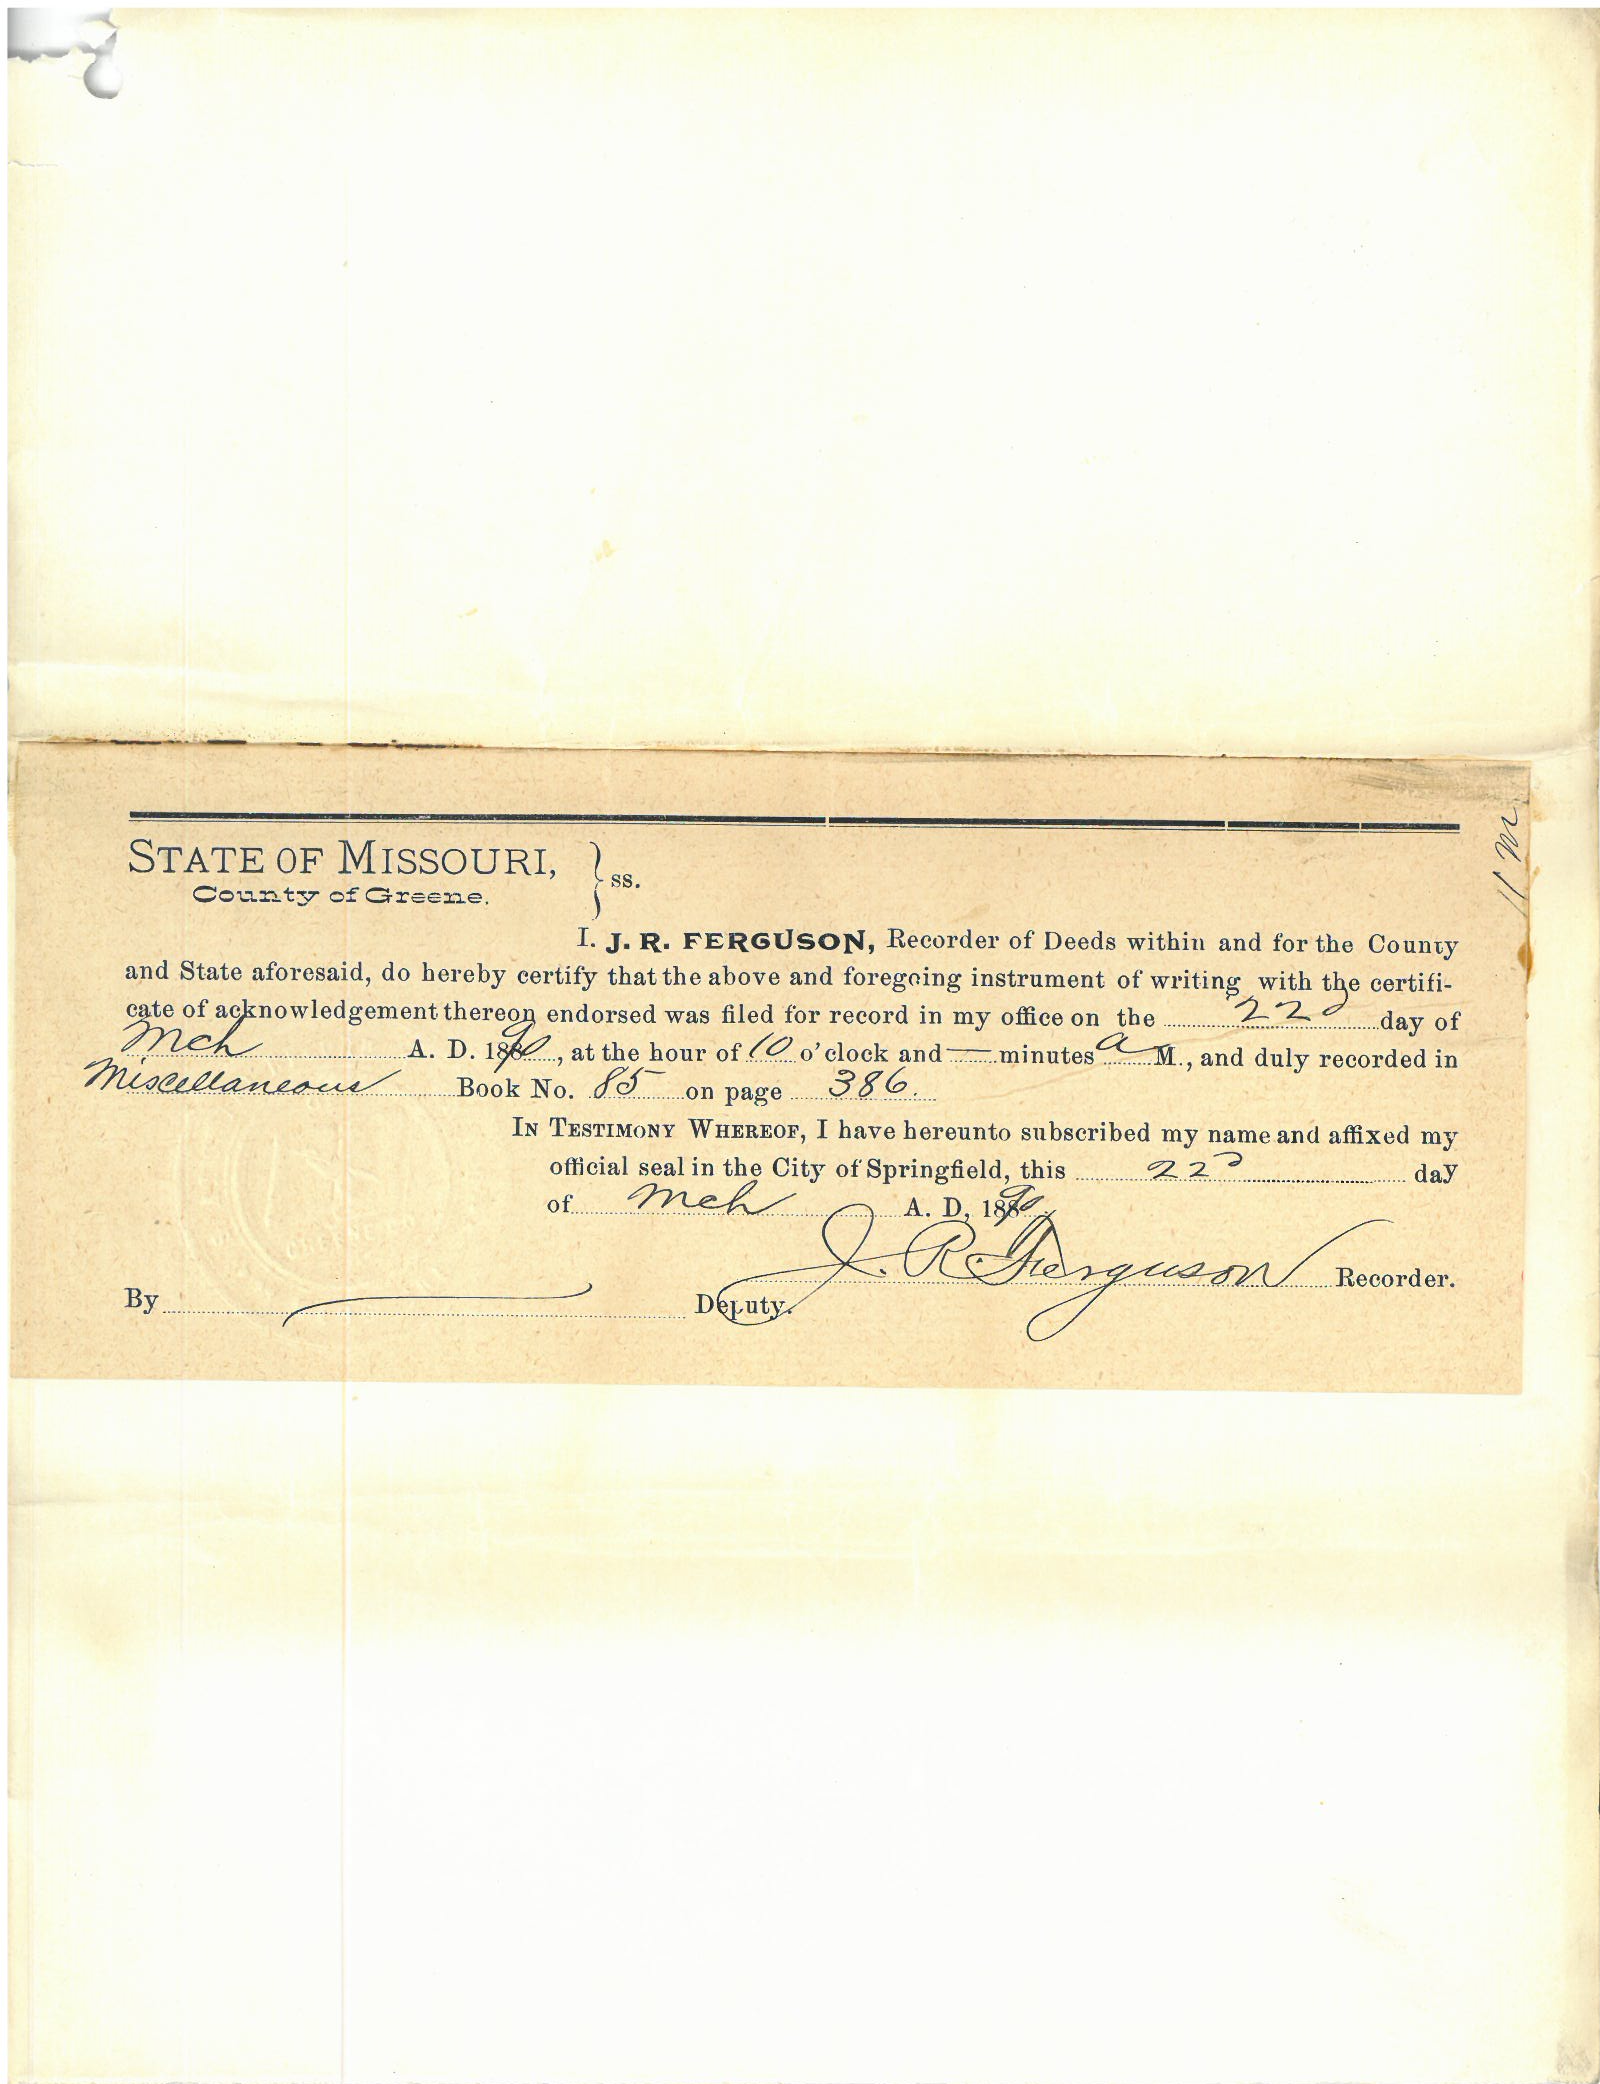 STATE OF MISSOURI,
County of Greene. } ss.
I. J. R. FERGUSON, Recorder of Deeds within and for the County
and State aforesaid, do hereby certify that the above and foregoing instrument of writing with the certifi-
cate of acknowledgement thereon endorsed was filed for record in my office on the 22d day of
Mch A. D. 1890, at the hour of 10 o'clock and — minutes a M., and duly recorded in
Miscellaneous Book No. 85 on page 386.
IN TESTIMONY WHEREOF, I have hereunto subscribed my name and affixed my
official seal in the City of Springfield, this 22d day
of Mch A. D, 1890.
J. R. Ferguson Recorder.
By Deputy.